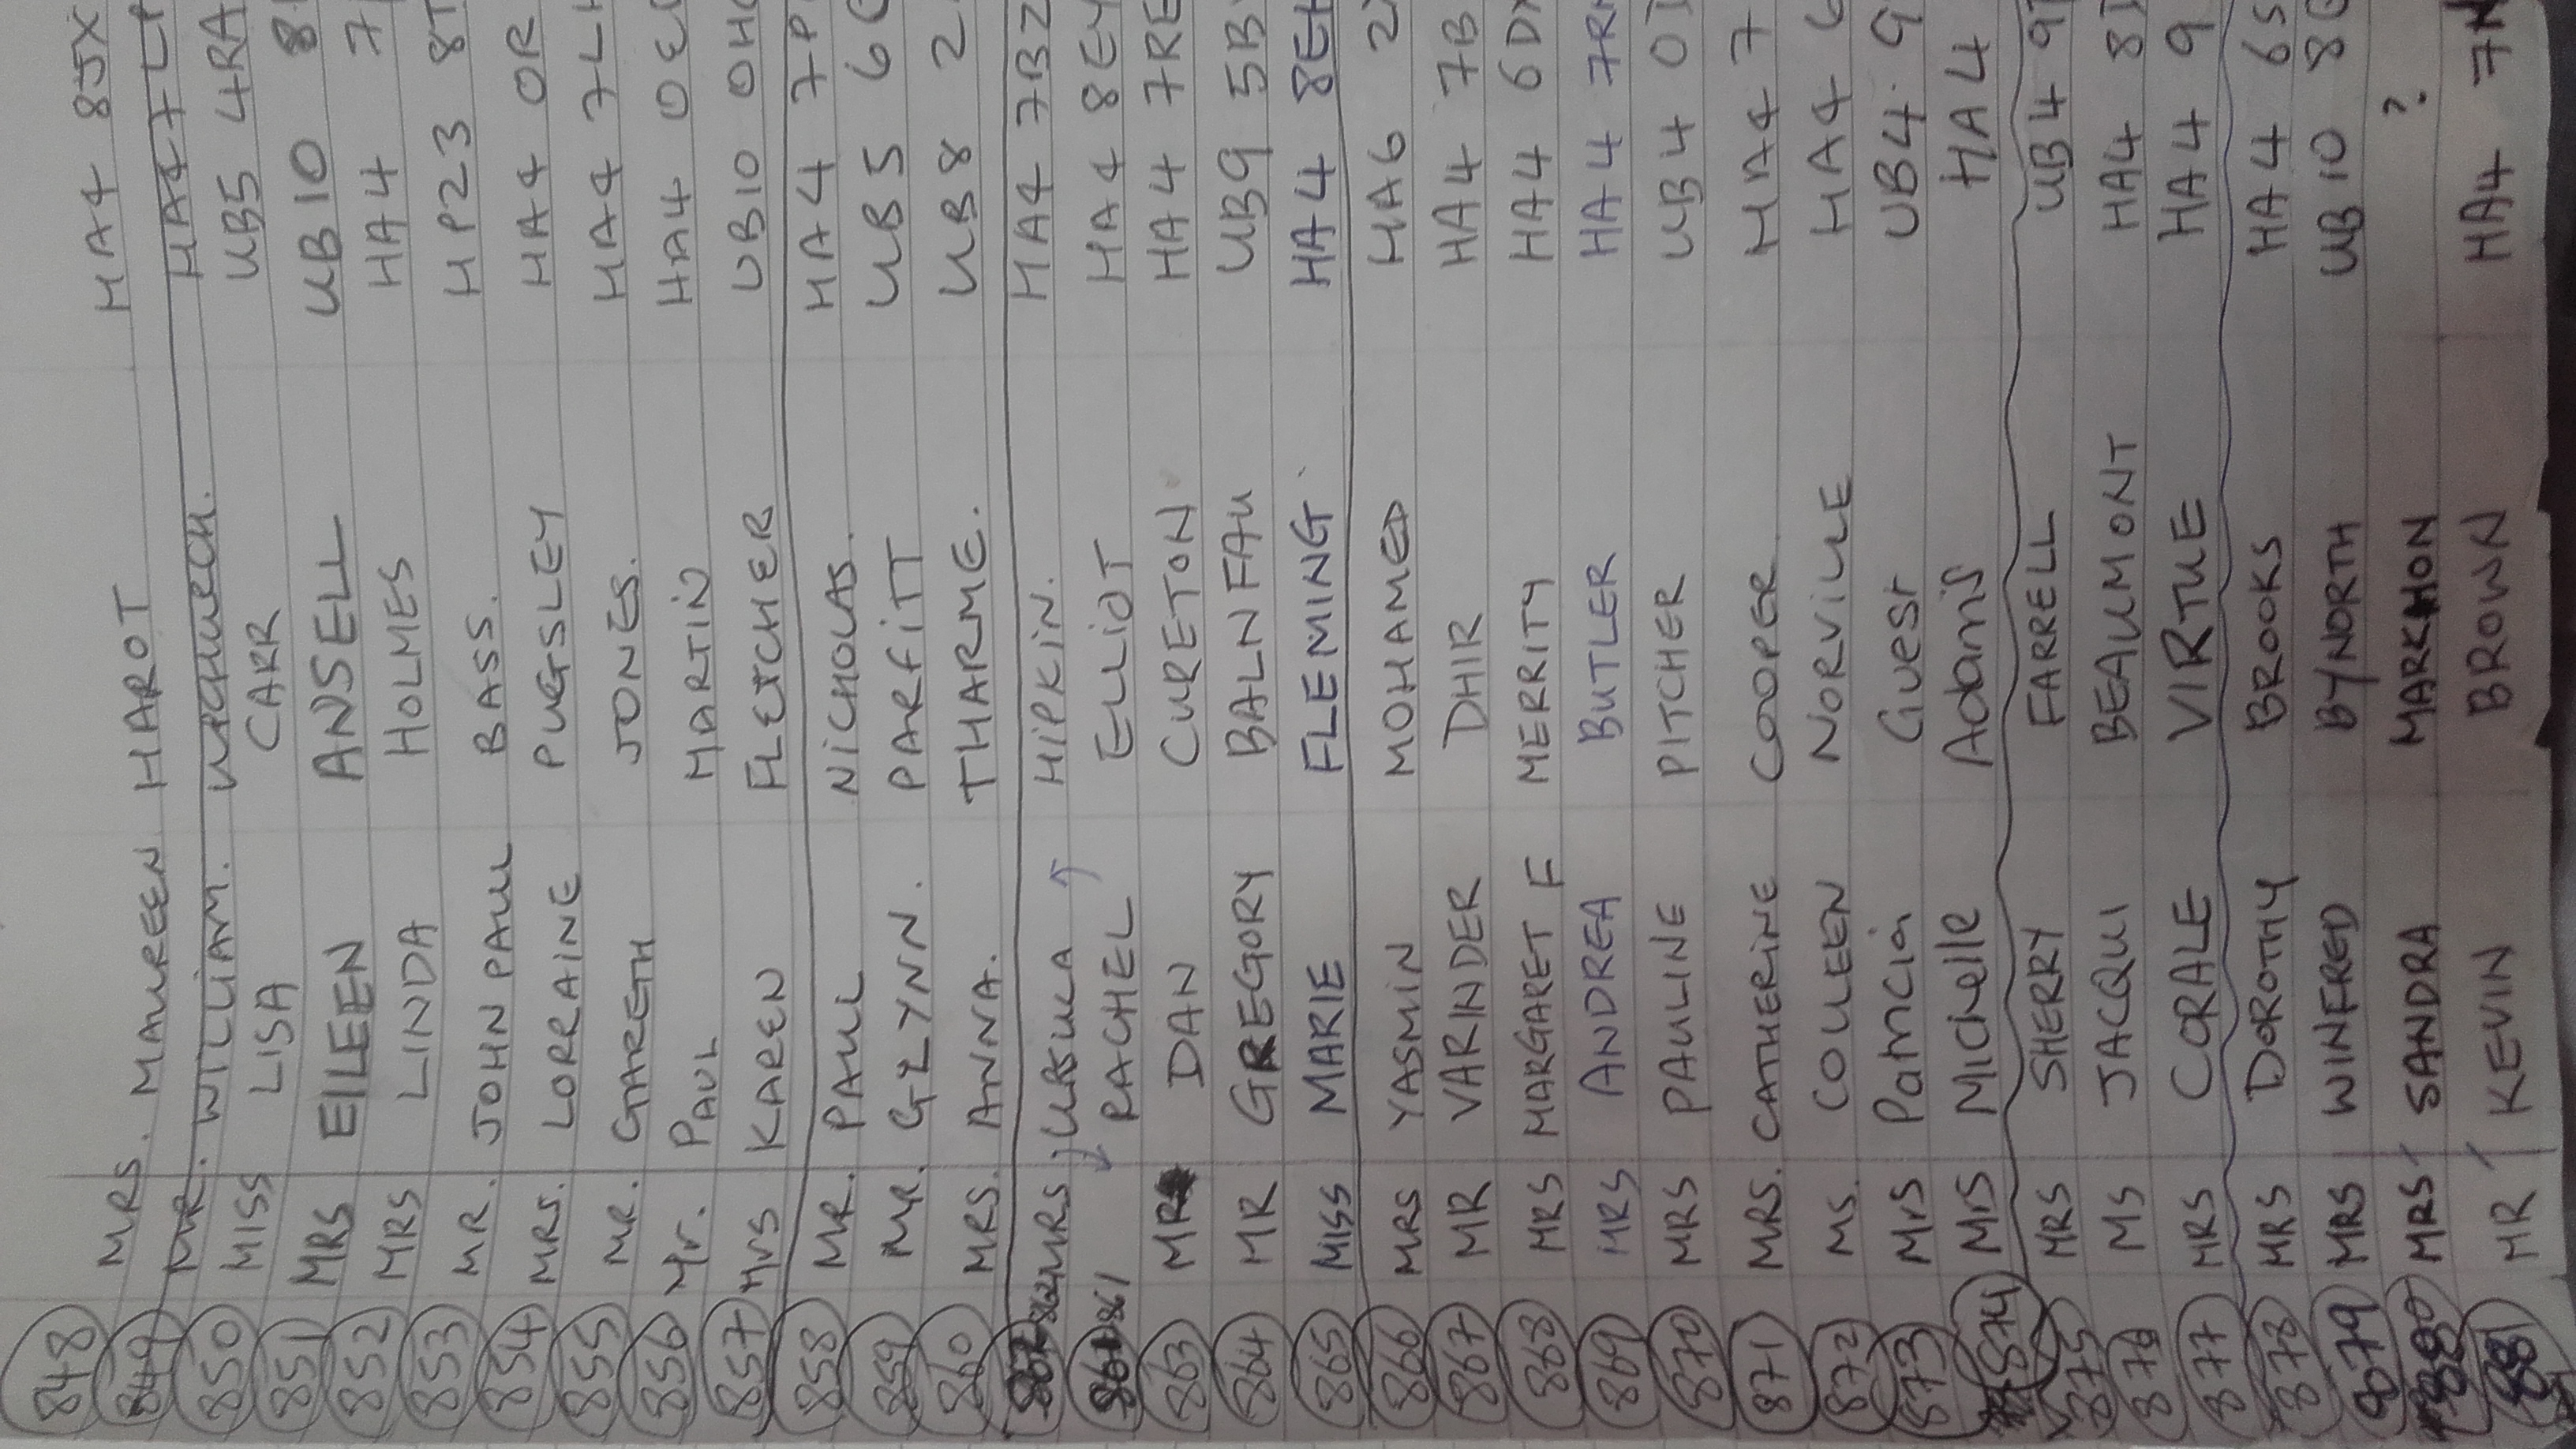 848 MRS. MAUREEN HAROT HA4 8JX
849 MR. WILLIAM. UPCHURCH. HA4 7LP
850 MISS LISA CARR UB5 4RA
851 MRS EILEEN ANSELL UB10 8
852 MRS LINDA HOLMES HA4 7
853 MR. JOHN PAUL BASS. HP23 8T
854 MRS. LORRAINE PUGSLEY HA4 0R
855 MR. GARETH JONES. HA4 7LH
856 Mr. PAUL MARTIN HA4 0E
857 Mrs KAREN FLETCHER UB10 0H
858 MR. PAUL NICHOLAS. HA4 7P
859 MR. GLYNN. PARFITT UB5 6
860 MRS. ANNA. THARME. UB8 2
862 MRS URSULA HIPKIN. HA4 7BZ
861 RACHEL ELLIOT HA4 8EY
863 MR DAN CURETON HA4 7RE
864 MR GREGORY BALNFAU UB9 5B
865 MISS MARIE FLEMING HA4 8EH
866 MRS YASMIN MOHAMED HA6 2
867 MR VARINDER DHIR HA4 7B
868 MRS MARGARET F MERRITY HA4 6DX
869 MRS ANDREA BUTLER HA4 7R
870 MRS PAULINE PITCHER UB4 0
871 MRS. CATHERINE COOPER HA4 7
872 MS. COLLEEN NORVILLE HA4 6
873 Mrs Patricia Guest UB4 9
874 Mrs Michelle Adams HA4
875 MRS SHERRY FARRELL UB4 9
876 MS JACQUI BEAUMONT HA4 8
877 MRS CORALE VIRTUE HA4 9
878 MRS DOROTHY BROOKS HA4 6S
879 MRS WINFRED BYNORTH UB10 8
880 MRS SANDRA MARKHON ?
881 MR KEVIN BROWN HA4 7